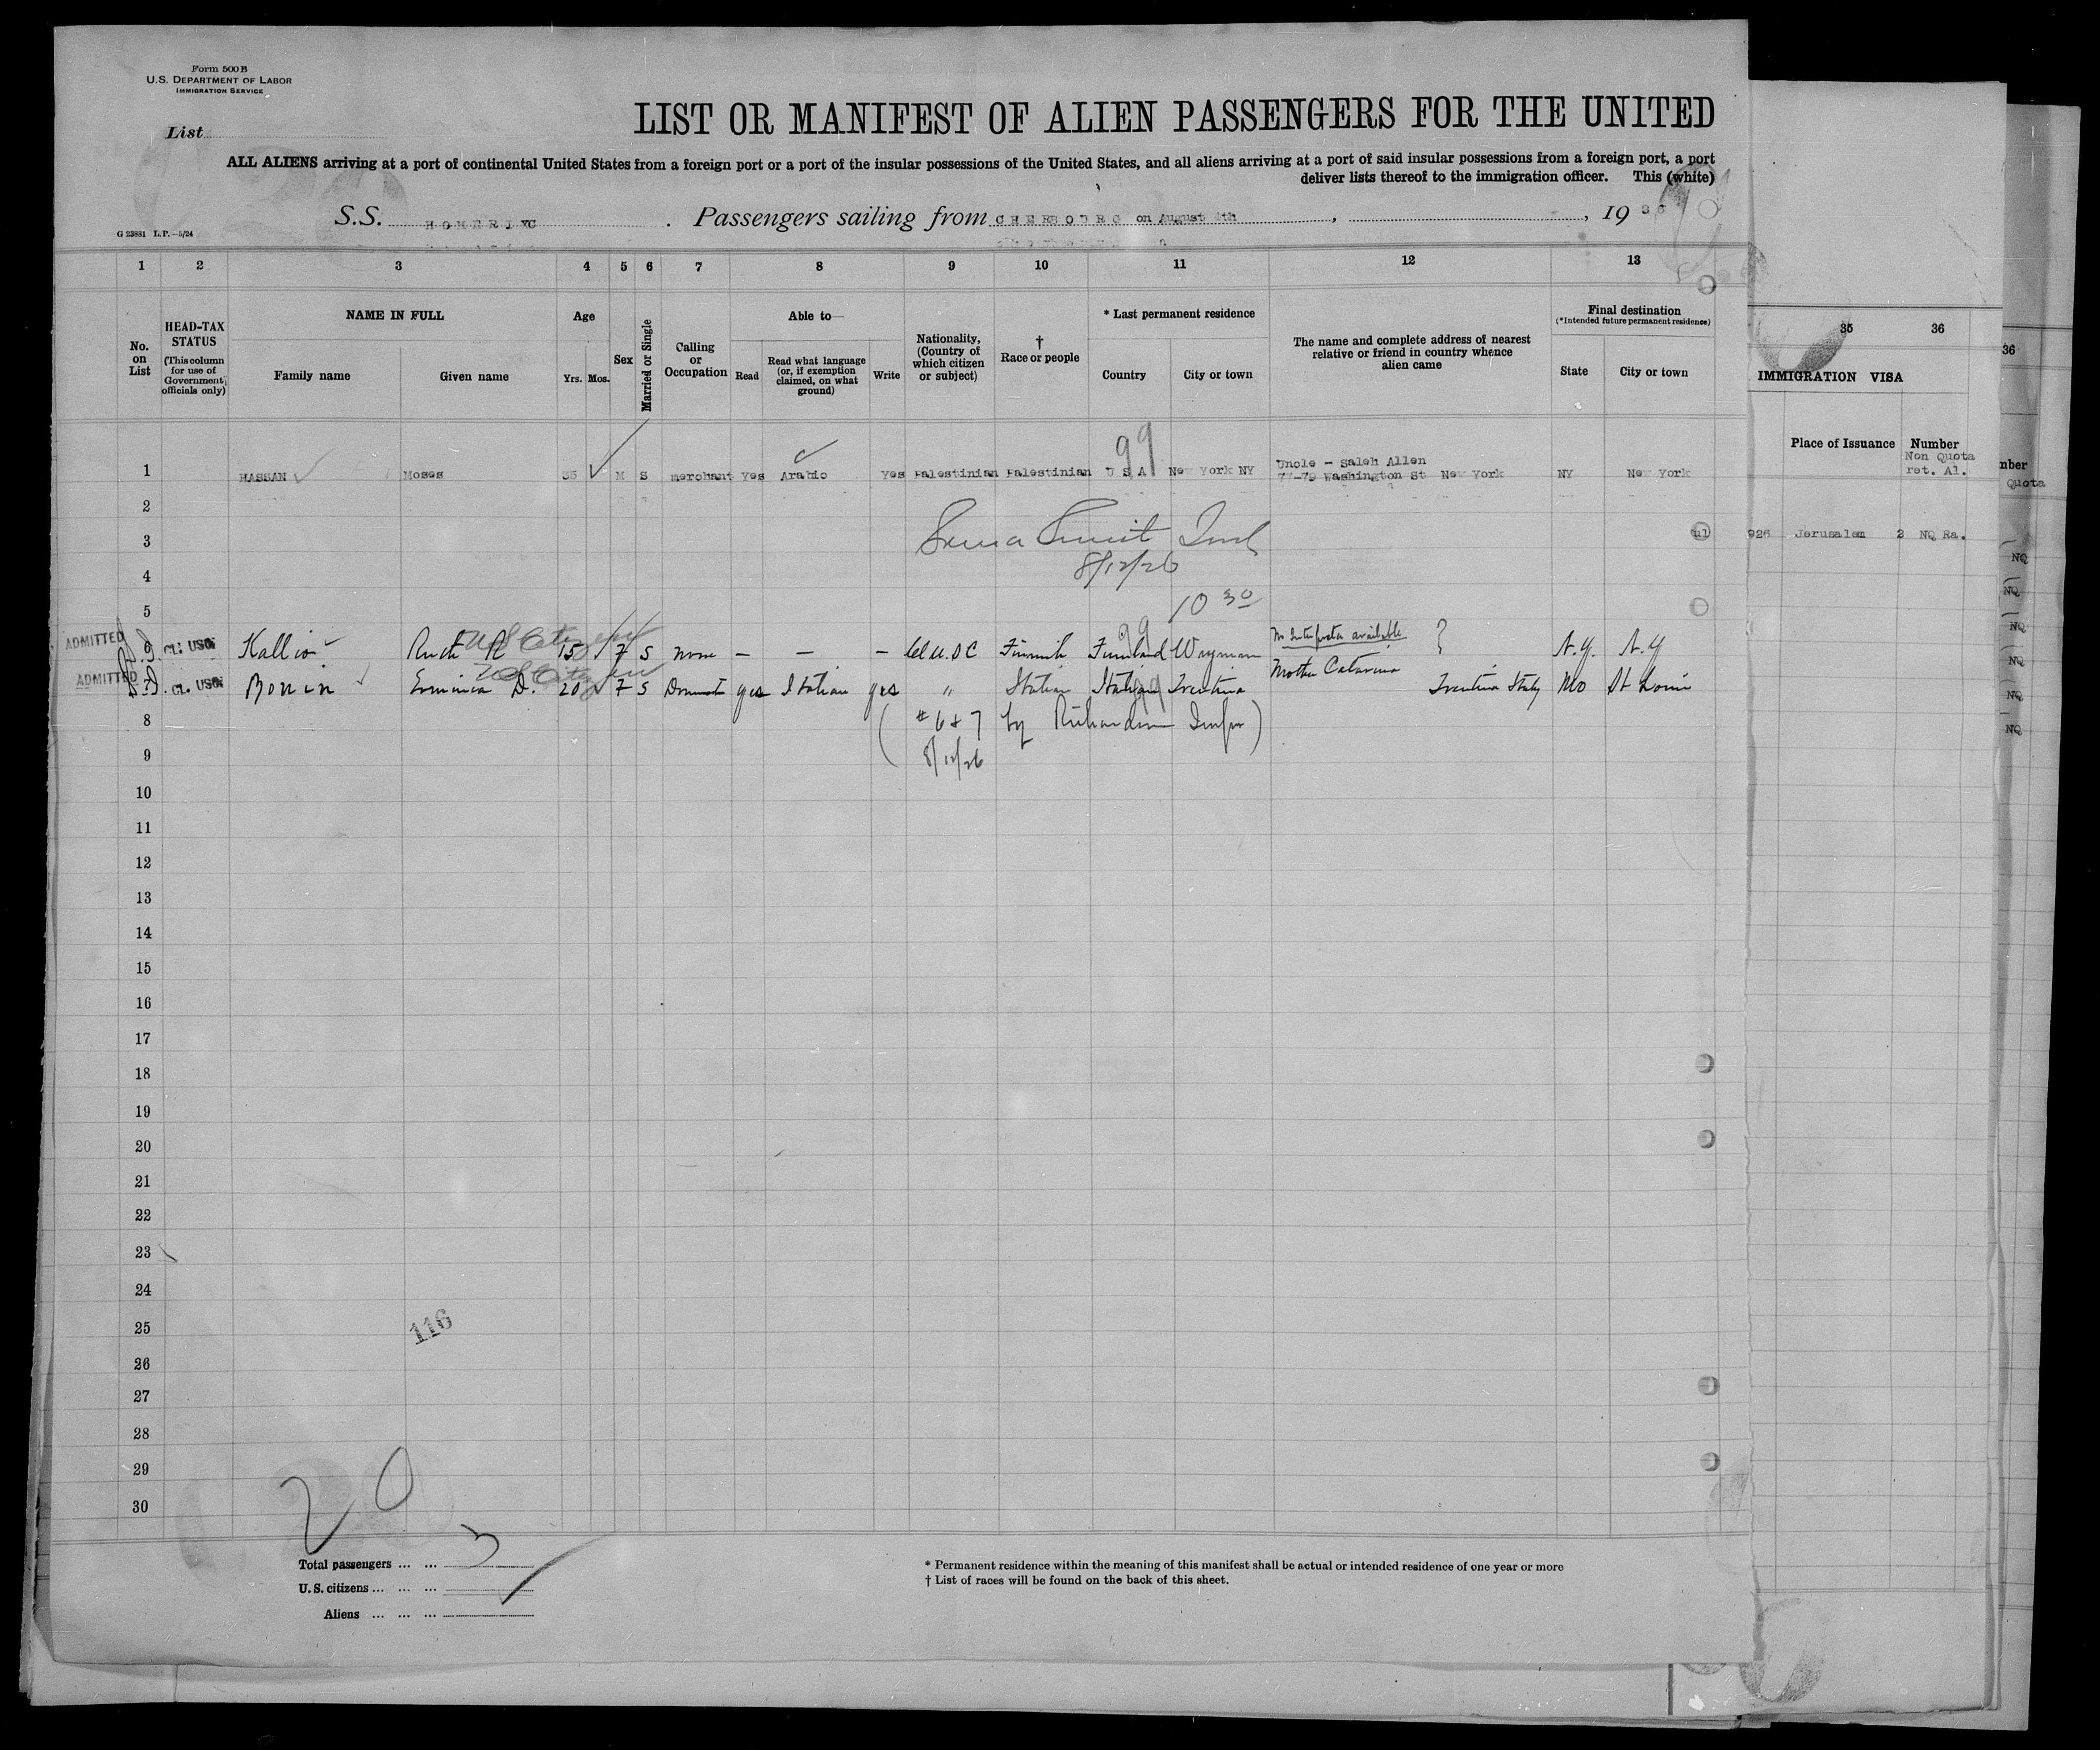 Form 500 B
U.S. DEPARTMENT OF LABOR
IMMIGRATION SERVICE
List
LIST OR MANIFEST OF ALIEN PASSENGERS FOR THE UNITED
ALL ALIENS arriving at a port of continental United States from a foreign port or a port of the insular possessions of the United States, and all aliens arriving at a port of said insular possessions from a foreign port, a port
deliver lists thereof to the immigration officer. This (white)
S.S. . Passengers sailing from on August , , 19
G 23881 L.P.—5/24
1 2 3 4 5 6 7 8 9 10 11 12 13
No. on List
HEAD-TAX STATUS
(This column for use of Government officials only)
NAME IN FULL
Family name
Given name
Age
Yrs. Mos.
Sex
Married or Single
Calling or Occupation
Able to—
Read
Read what language (or, if exemption claimed, on what ground)
Write
Nationality, (Country of which citizen or subject)
† Race or people
* Last permanent residence
Country
City or town
The name and complete address of nearest relative or friend in country whence alien came
Final destination
(*Intended future permanent residence)
State
City or town
35 36
36
IMMIGRATION VISA
Place of Issuance
Number
Non Quota
ret. Al.
nber
Quota
1 HASSAN Moses 35 M S merchant Yes Arabic Yes Palestinian Palestinian U S A New York NY Uncle - Saleh Allen
77-79 Washington St New York NY New York
99
2
3
926 Jerusalem 2 NQ Ra.
4
8/12/26
5
10 30
ADMITTED 6 CL: USC. Kallio Ruth R US Citizen 15 F S none — — — Cl U.S C Finnish Finland No Interpreter available ? N.Y. N.Y
ADMITTED 7 CL: USC. Bonin D. US Citizen 20 F S Domest yes Italian yes " Italian Italian Mother Catarina Italy Mo St Louis
8 (# 6 & 7 by Richardson Inspr)
9 8/12/26
10
11
12
13
14
15
16
17
18
19
20
21
22
23
24
25 116
26
27
28
29
30
20
Total passengers ... ... 3
U. S. citizens ... ... ...
Aliens ... ... ...
* Permanent residence within the meaning of this manifest shall be actual or intended residence of one year or more
† List of races will be found on the back of this sheet.
NQ
NQ
NQ
NQ
NQ
NQ